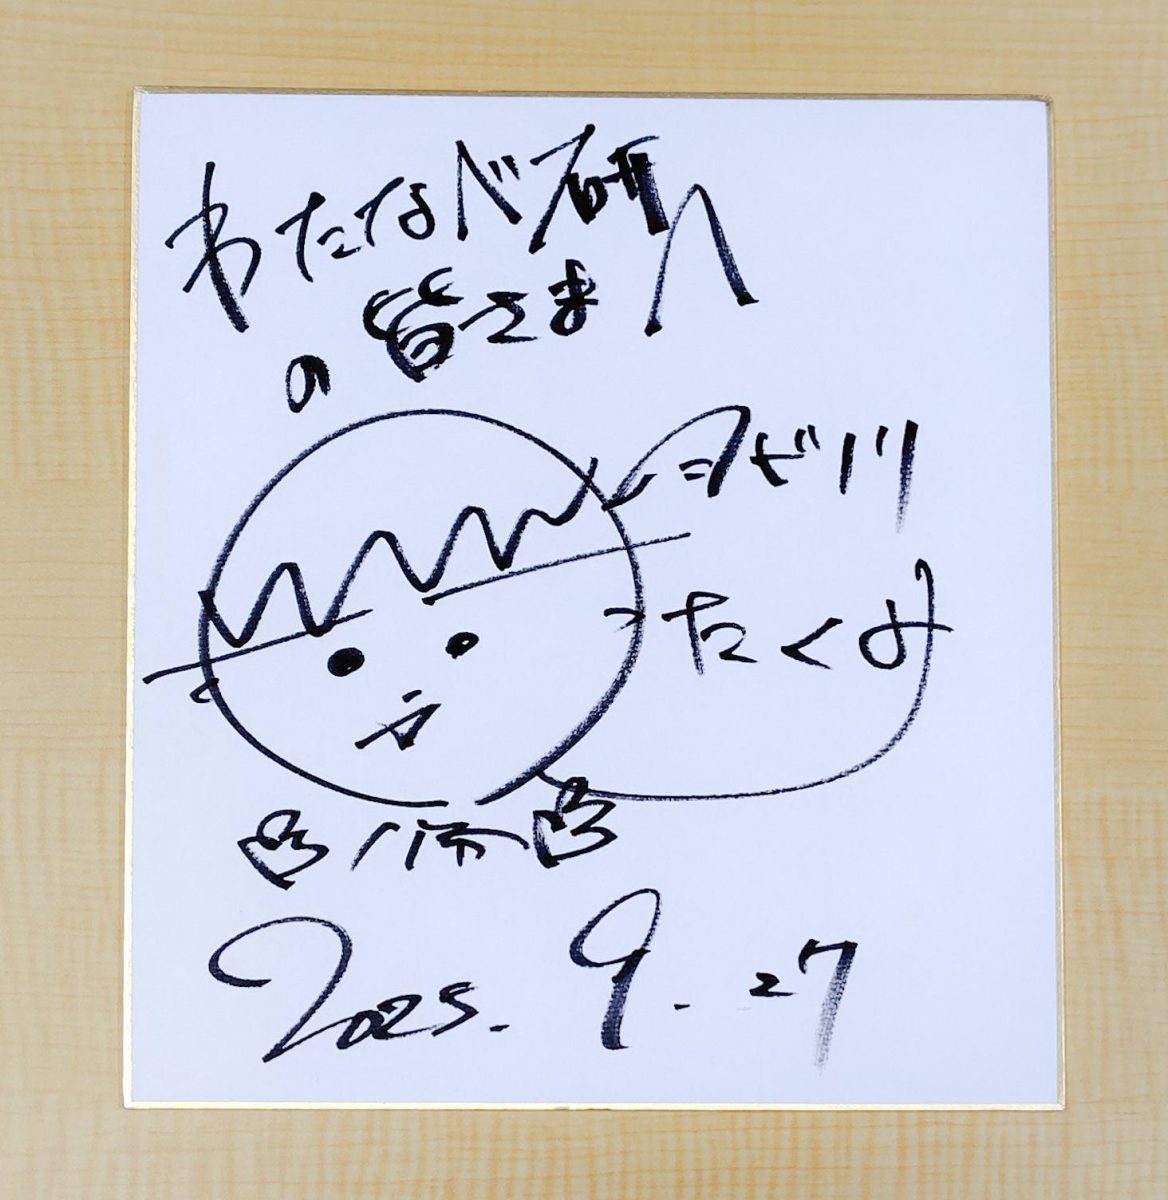 わたなべ研
の皆さまへ
ヨビノリ
たくみ
2025.9.27